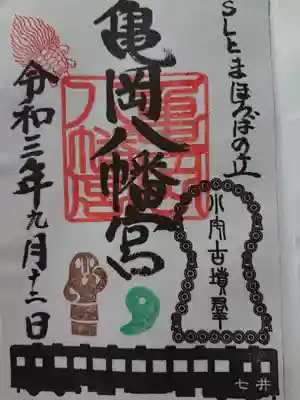 SLとまほろばの丘
亀岡八幡宮
令和三年九月十二日
小宅古墳群
七井